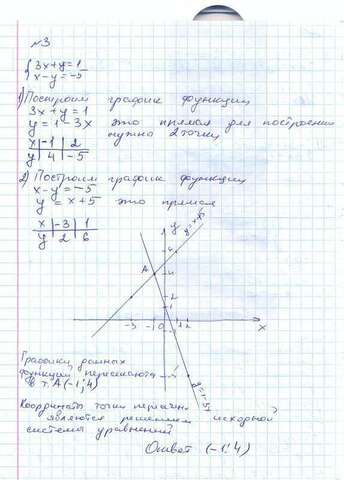 №3
{ 3x+y=1
x-y=-5
1) Построим график функции
3x+y=1
y=1-3x это прямая для построения
нужно 2 точки
x|-1|2
y|4|-5
2) Построим график функции
x-y=-5
y=x+5 это прямая
x|-3|1
y|2|6
y
y=x+5
6
A
4
2
1
-3 -1 0 1 2
x
-5
Графики данных
функций пересекаются
в т. A(-1;4)
Координаты точки пересечен
являются решением исходной
системы уравнений
Ответ (-1;4)